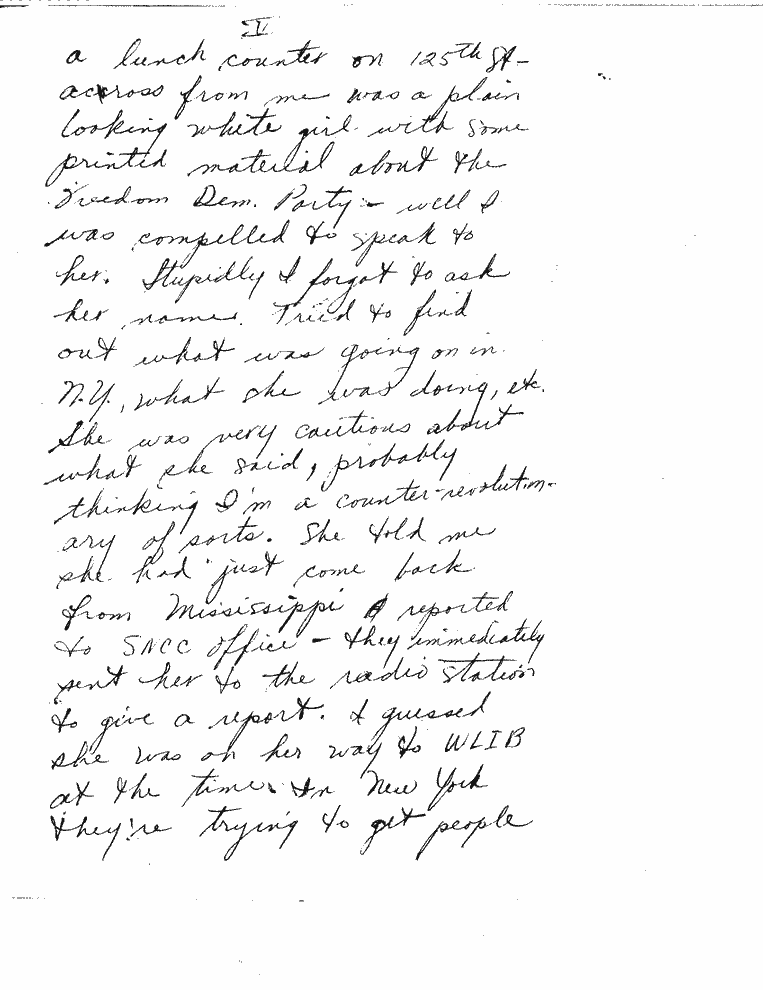 IV
a lunch counter on 125th St -
accross from me was a plain
looking white girl with some
printed material about the
Freedom Dem. Party - well I
was compelled to speak to
her. Stupidly I forgot to ask
her name. Tried to find
out what was going on in
N.Y., what she was doing, etc.
She was very cautious about
what she said, probably
thinking I'm a counter-revolution-
ary of sorts. She told me
she had just come back
from Mississippi & reported
to SNCC office - they immediately
sent her to the radio station
to give a report. I guessed
she was on her way to WLIB
at the time. In New York
they're trying to get people